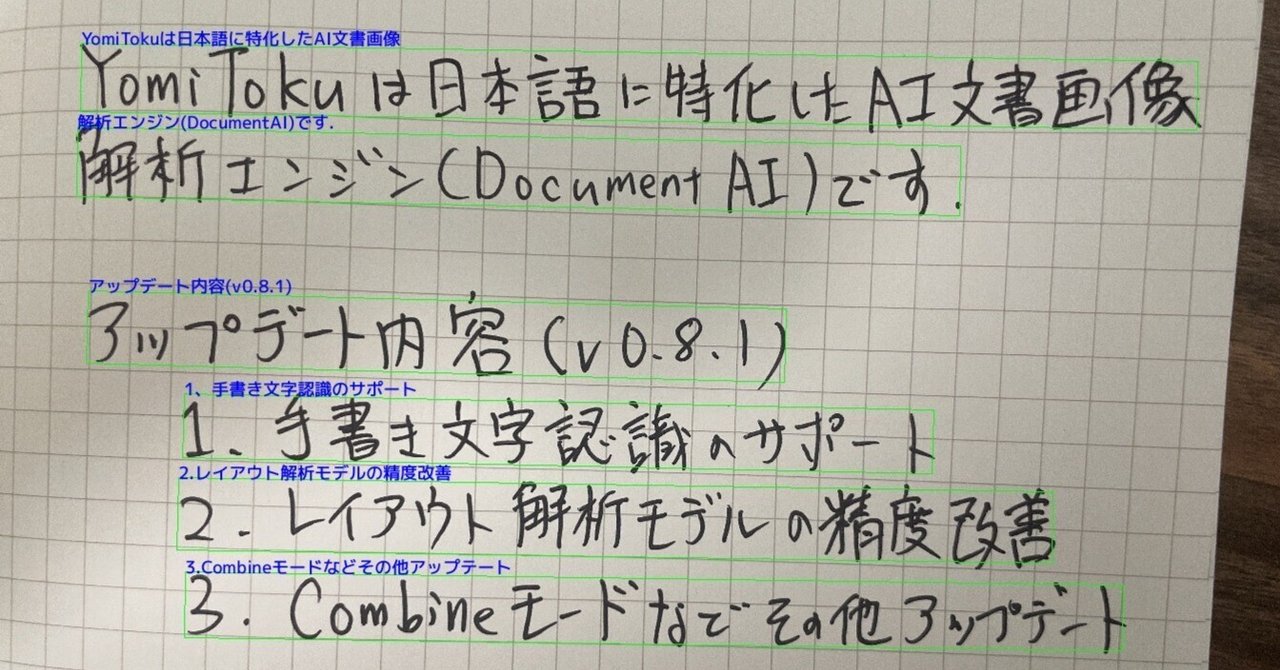 YomiTokuは日本語に特化したAI文書画像
YomiTokuは日本語に特化したAI文書画像
解析エンジン(DocumentAI)です.
解析エンジン(Document AI)です.
アップデート内容(v0.8.1)
アップデート内容(v0.8.1)
1、手書き文字認識のサポート
1、手書き文字認識のサポート
2.レイアウト解析モデルの精度改善
2.レイアウト解析モデルの精度改善
3.Combineモードなどその他アップテート
3.Combineモードなどその他アップデート